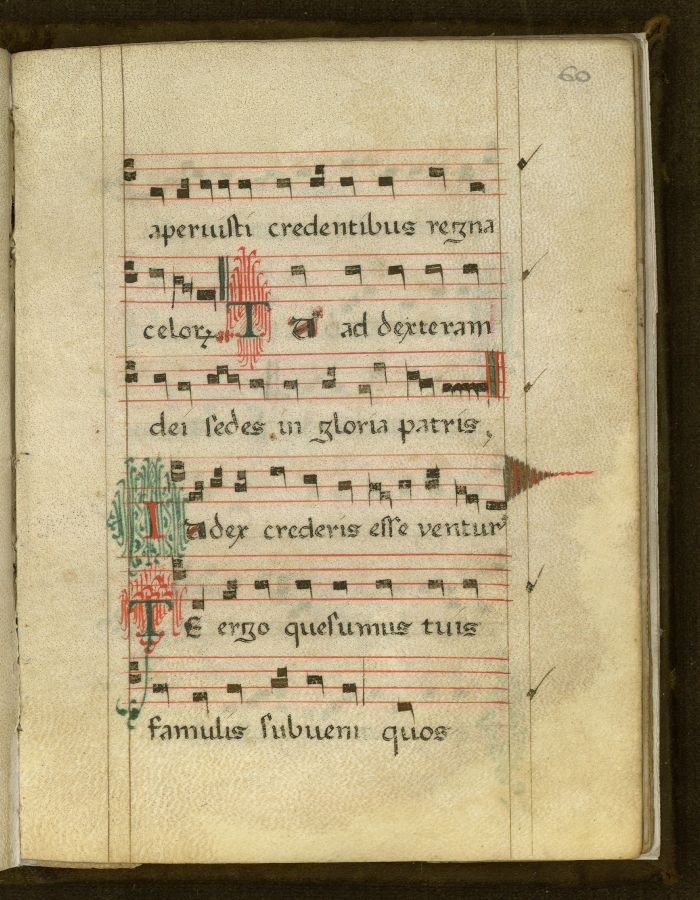 60
aperuisti credentibus regna
celorꝝ Tu ad dexteram
dei sedes in gloria patris.
Iudex crederis esse ventur⁹
TE ergo quesumus tuis
famulis subueni quos